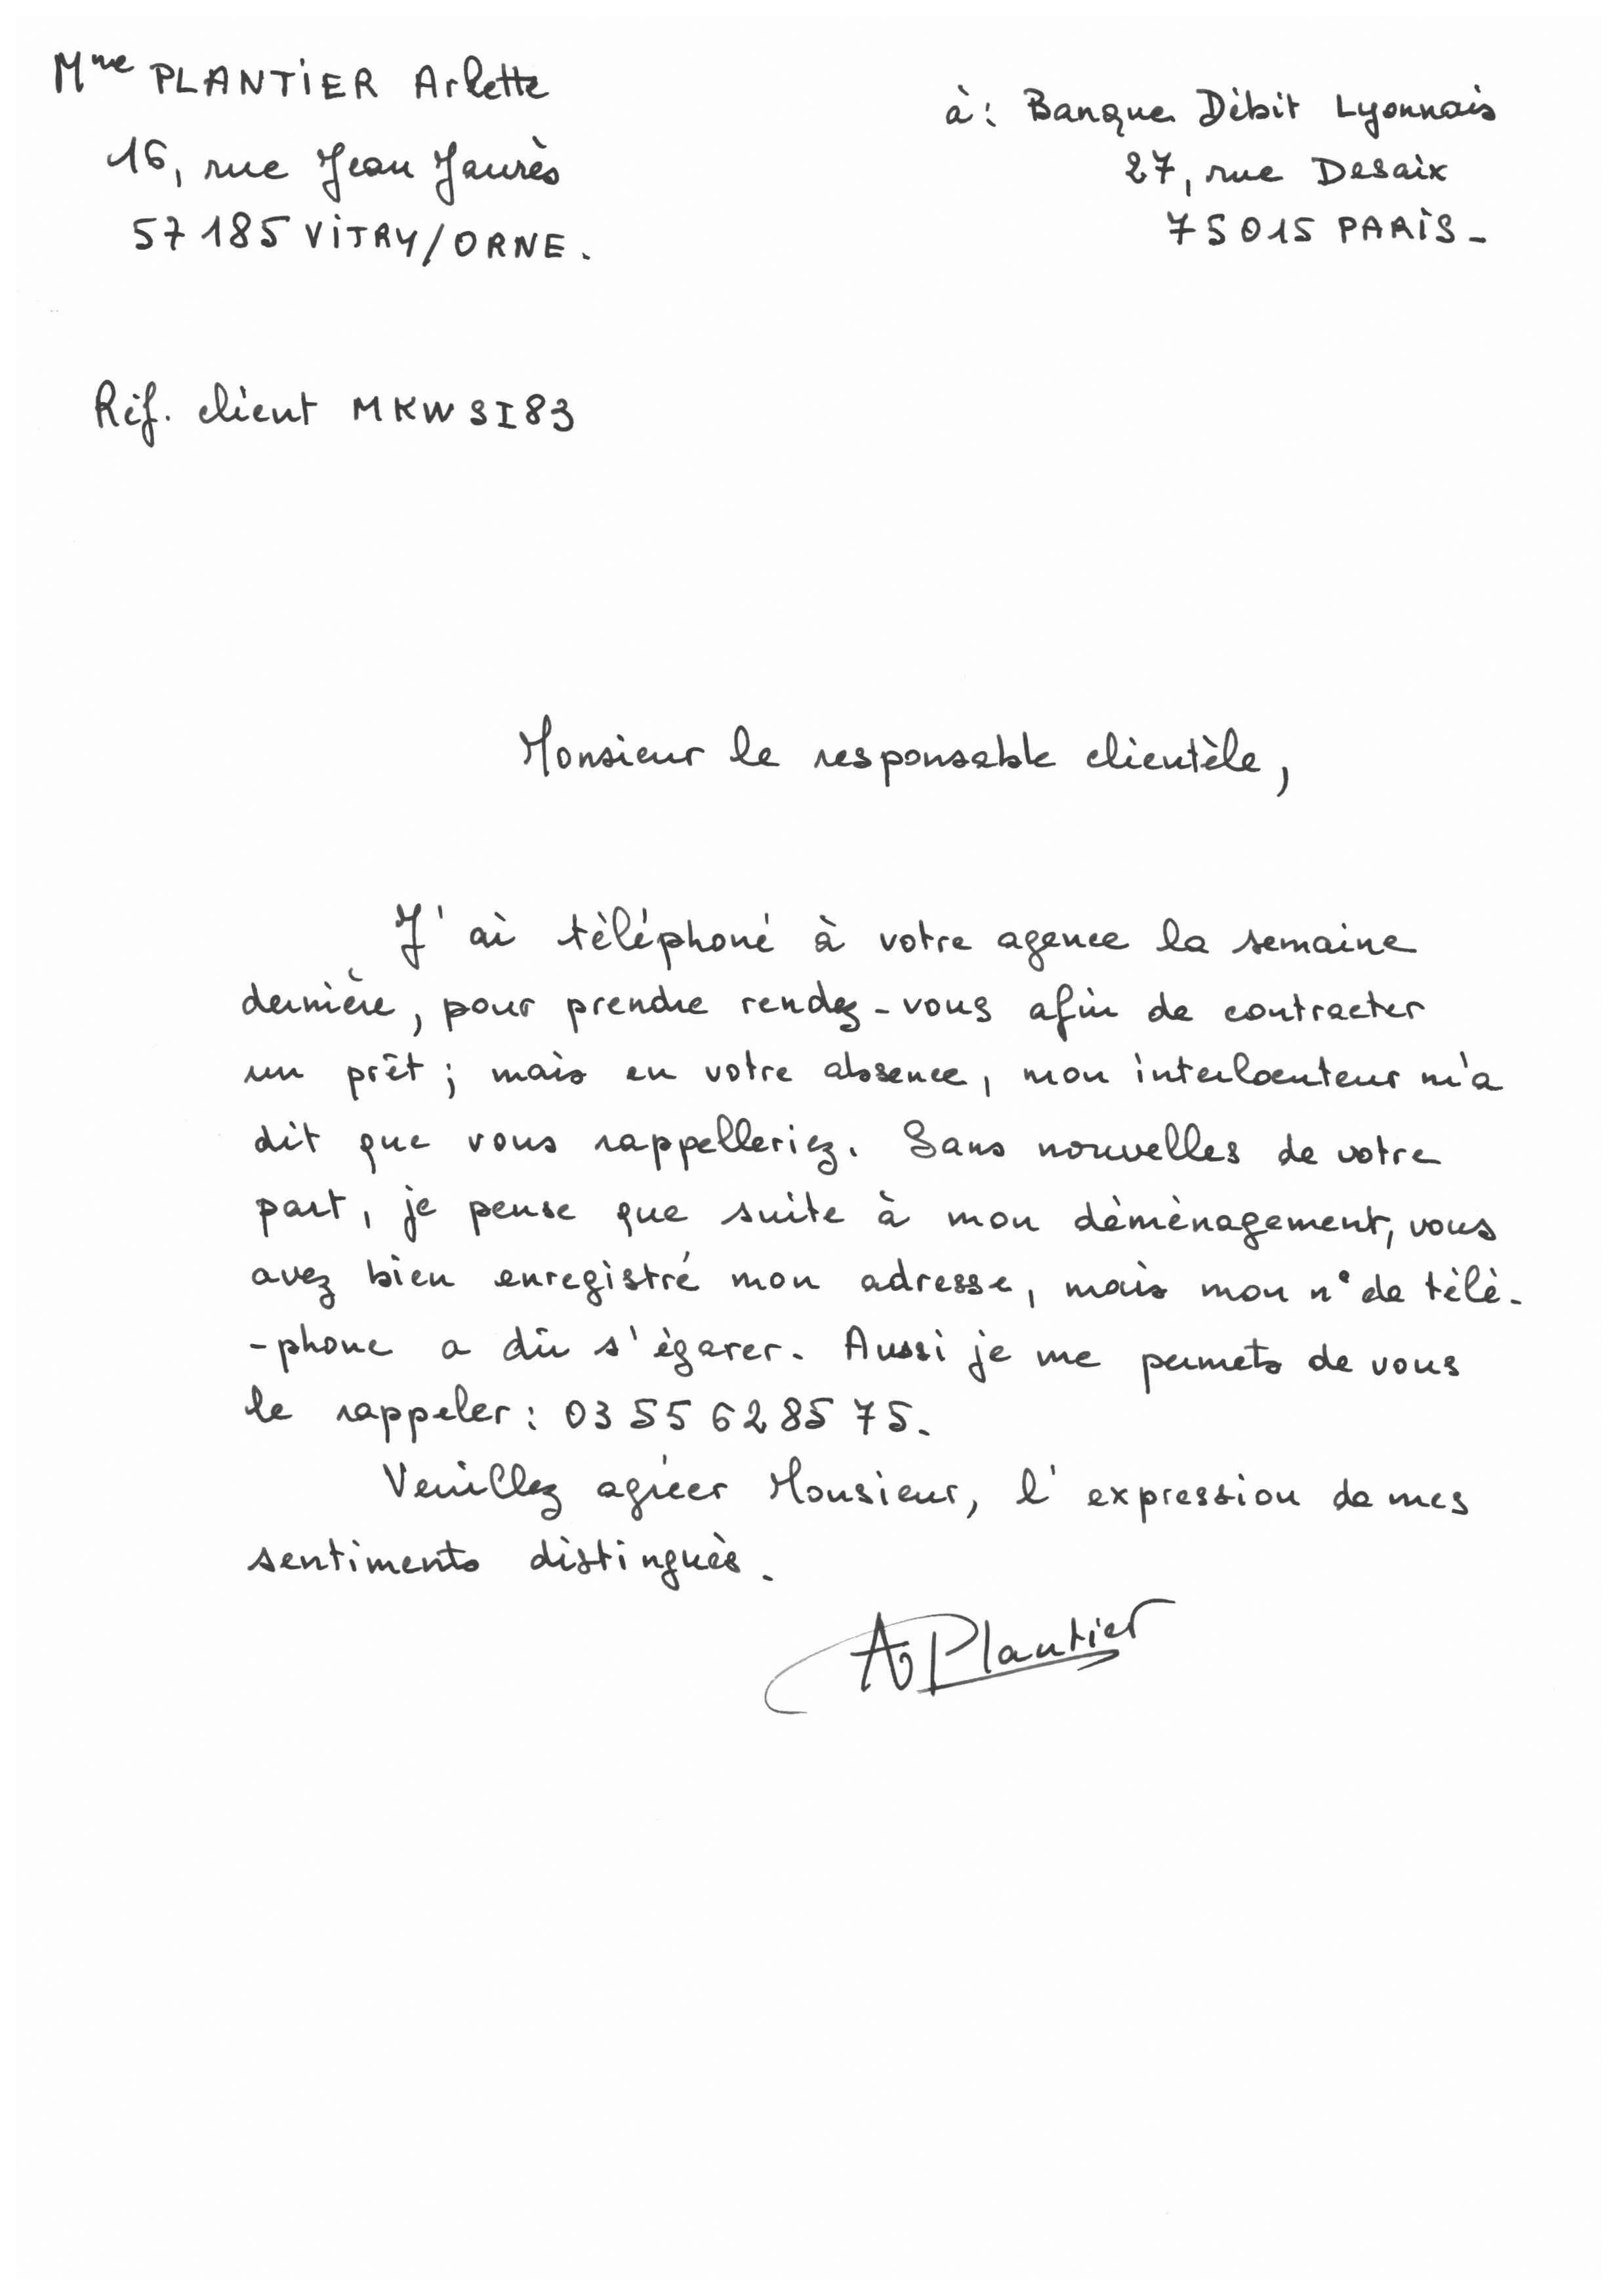 Mme PLANTIER Arlette
16, rue Jean Jaurès
57185 VITRY/ORNE.
à : Banque Débit Lyonnais
27, rue Desaix
75015 PARIS-
Réf. client MKWSI83
Monsieur le responsable clientèle,
J'ai téléphoné à votre agence la semaine
dernière, pour prendre rendez-vous afin de contracter
un prêt ; mais en votre absence, mon interlocuteur m'a
dit que vous rappelleriez. Sans nouvelles de votre
part, je pense que suite à mon déménagement, vous
avez bien enregistré mon adresse, mais mon n° de télé-
-phone a dû s'égarer. Aussi je me permets de vous
le rappeler : 03 55 62 85 75.
Veuillez agréer Monsieur, l'expression de mes
sentiments distingués.
A Plantier